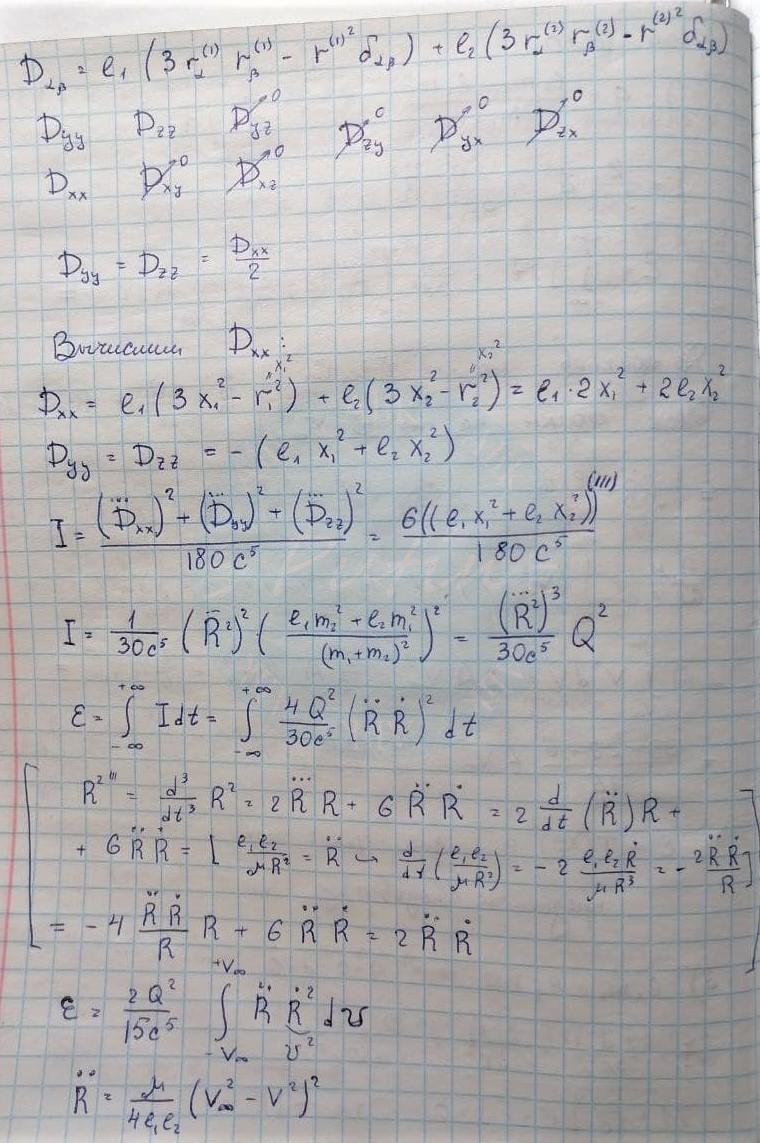 D_{αβ} = e₁ (3 r_α^{(1)} r_β^{(1)} - r^{(1)²} δ_{αβ}) + e₂ (3 r_α^{(2)} r_β^{(2)} - r^{(2)²} δ_{αβ})
D_{yy} D_{zz} D_{yz}→0 D_{zy}→0 D_{yx}→0 D_{zx}→0
D_{xx} D_{xy}→0 D_{xz}→0
D_{yy} = D_{zz} = D_{xx}/2
Вычислим D_{xx} :
x₁² x₂²
D_{xx} = e₁ (3 x₁² - r₁²) + e₂ (3 x₂² - r₂²) = e₁·2 x₁² + 2 e₂ x₂²
D_{yy} = D_{zz} = - (e₁ x₁² + e₂ x₂²)
I = ((D⃛_{xx})² + (D⃛_{yy})² + (D⃛_{zz})²)/(180 c⁵) = 6((e₁ x₁² + e₂ x₂²))^{(III)}/(180 c⁵)
I = 1/(30c⁵) (R̈²)² ((e₁m₂² + e₂m₁²)/(m₁+m₂)²)² = (R⃛²)³/(30c⁵) Q²
ε = ∫_{-∞}^{+∞} I dt = ∫_{-∞}^{+∞} 4Q²/(30c⁵) (R̈ Ṙ)² dt
[ R²''' = d³/dt³ R² = 2 R⃛ R + 6 R̈ Ṙ = 2 d/dt (R̈) R +
+ 6 R̈ Ṙ = [ e₁e₂/(μR²) = R̈ ↪ d/dt (e₁e₂/(μR²)) = -2 e₁e₂Ṙ/(μR³) = - 2R̈Ṙ/R ]
= -4 R̈Ṙ/R R + 6 R̈ Ṙ = 2 R̈ Ṙ ]
ε = 2Q²/(15c⁵) ∫_{-V∞}^{+V∞} R̈ Ṙ² dv
v²
R̈ = μ/(4e₁e₂) (V∞² - V²)²